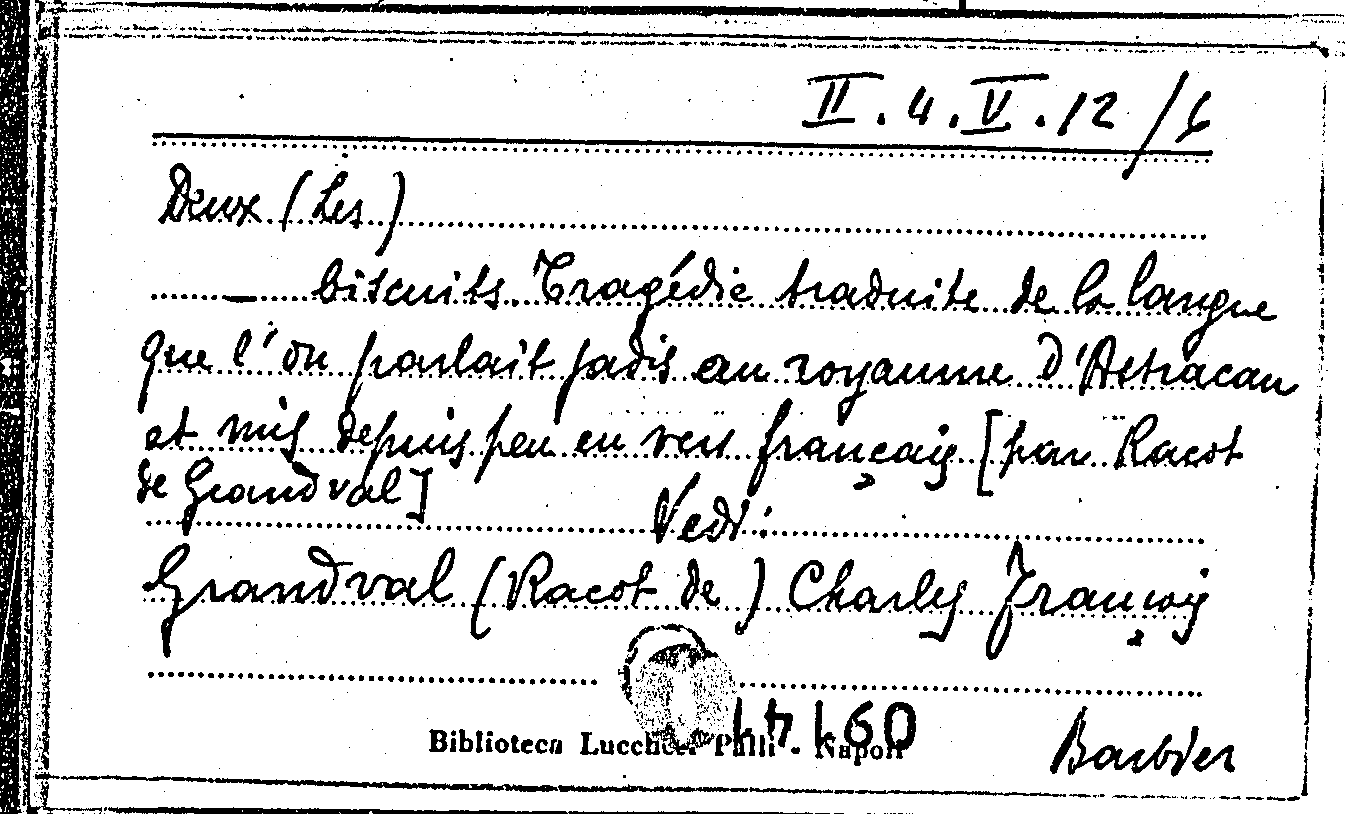 II.4.V.12/6
Deux (Les)
— biscuits. Tragédie traduite de la langue
que l'on parlait jadis au royaume d'Astracan
et mis depuis peu en vers français [par Racot
de Grandval]
Vedi:
Grandval (Racot de) Charles François
Biblioteca Lucchesi Palli - Napoli
091441
Barbier